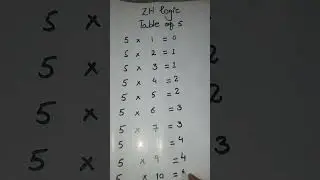 ZH logic
Table of 5
5 × 1 = 0
5 × 2 = 1
5 × 3 = 1
5 × 4 = 2
5 × 5 = 2
5 × 6 = 3
5 × 7 = 3
5 = 4
5 × 9 = 4
5 × 10 =